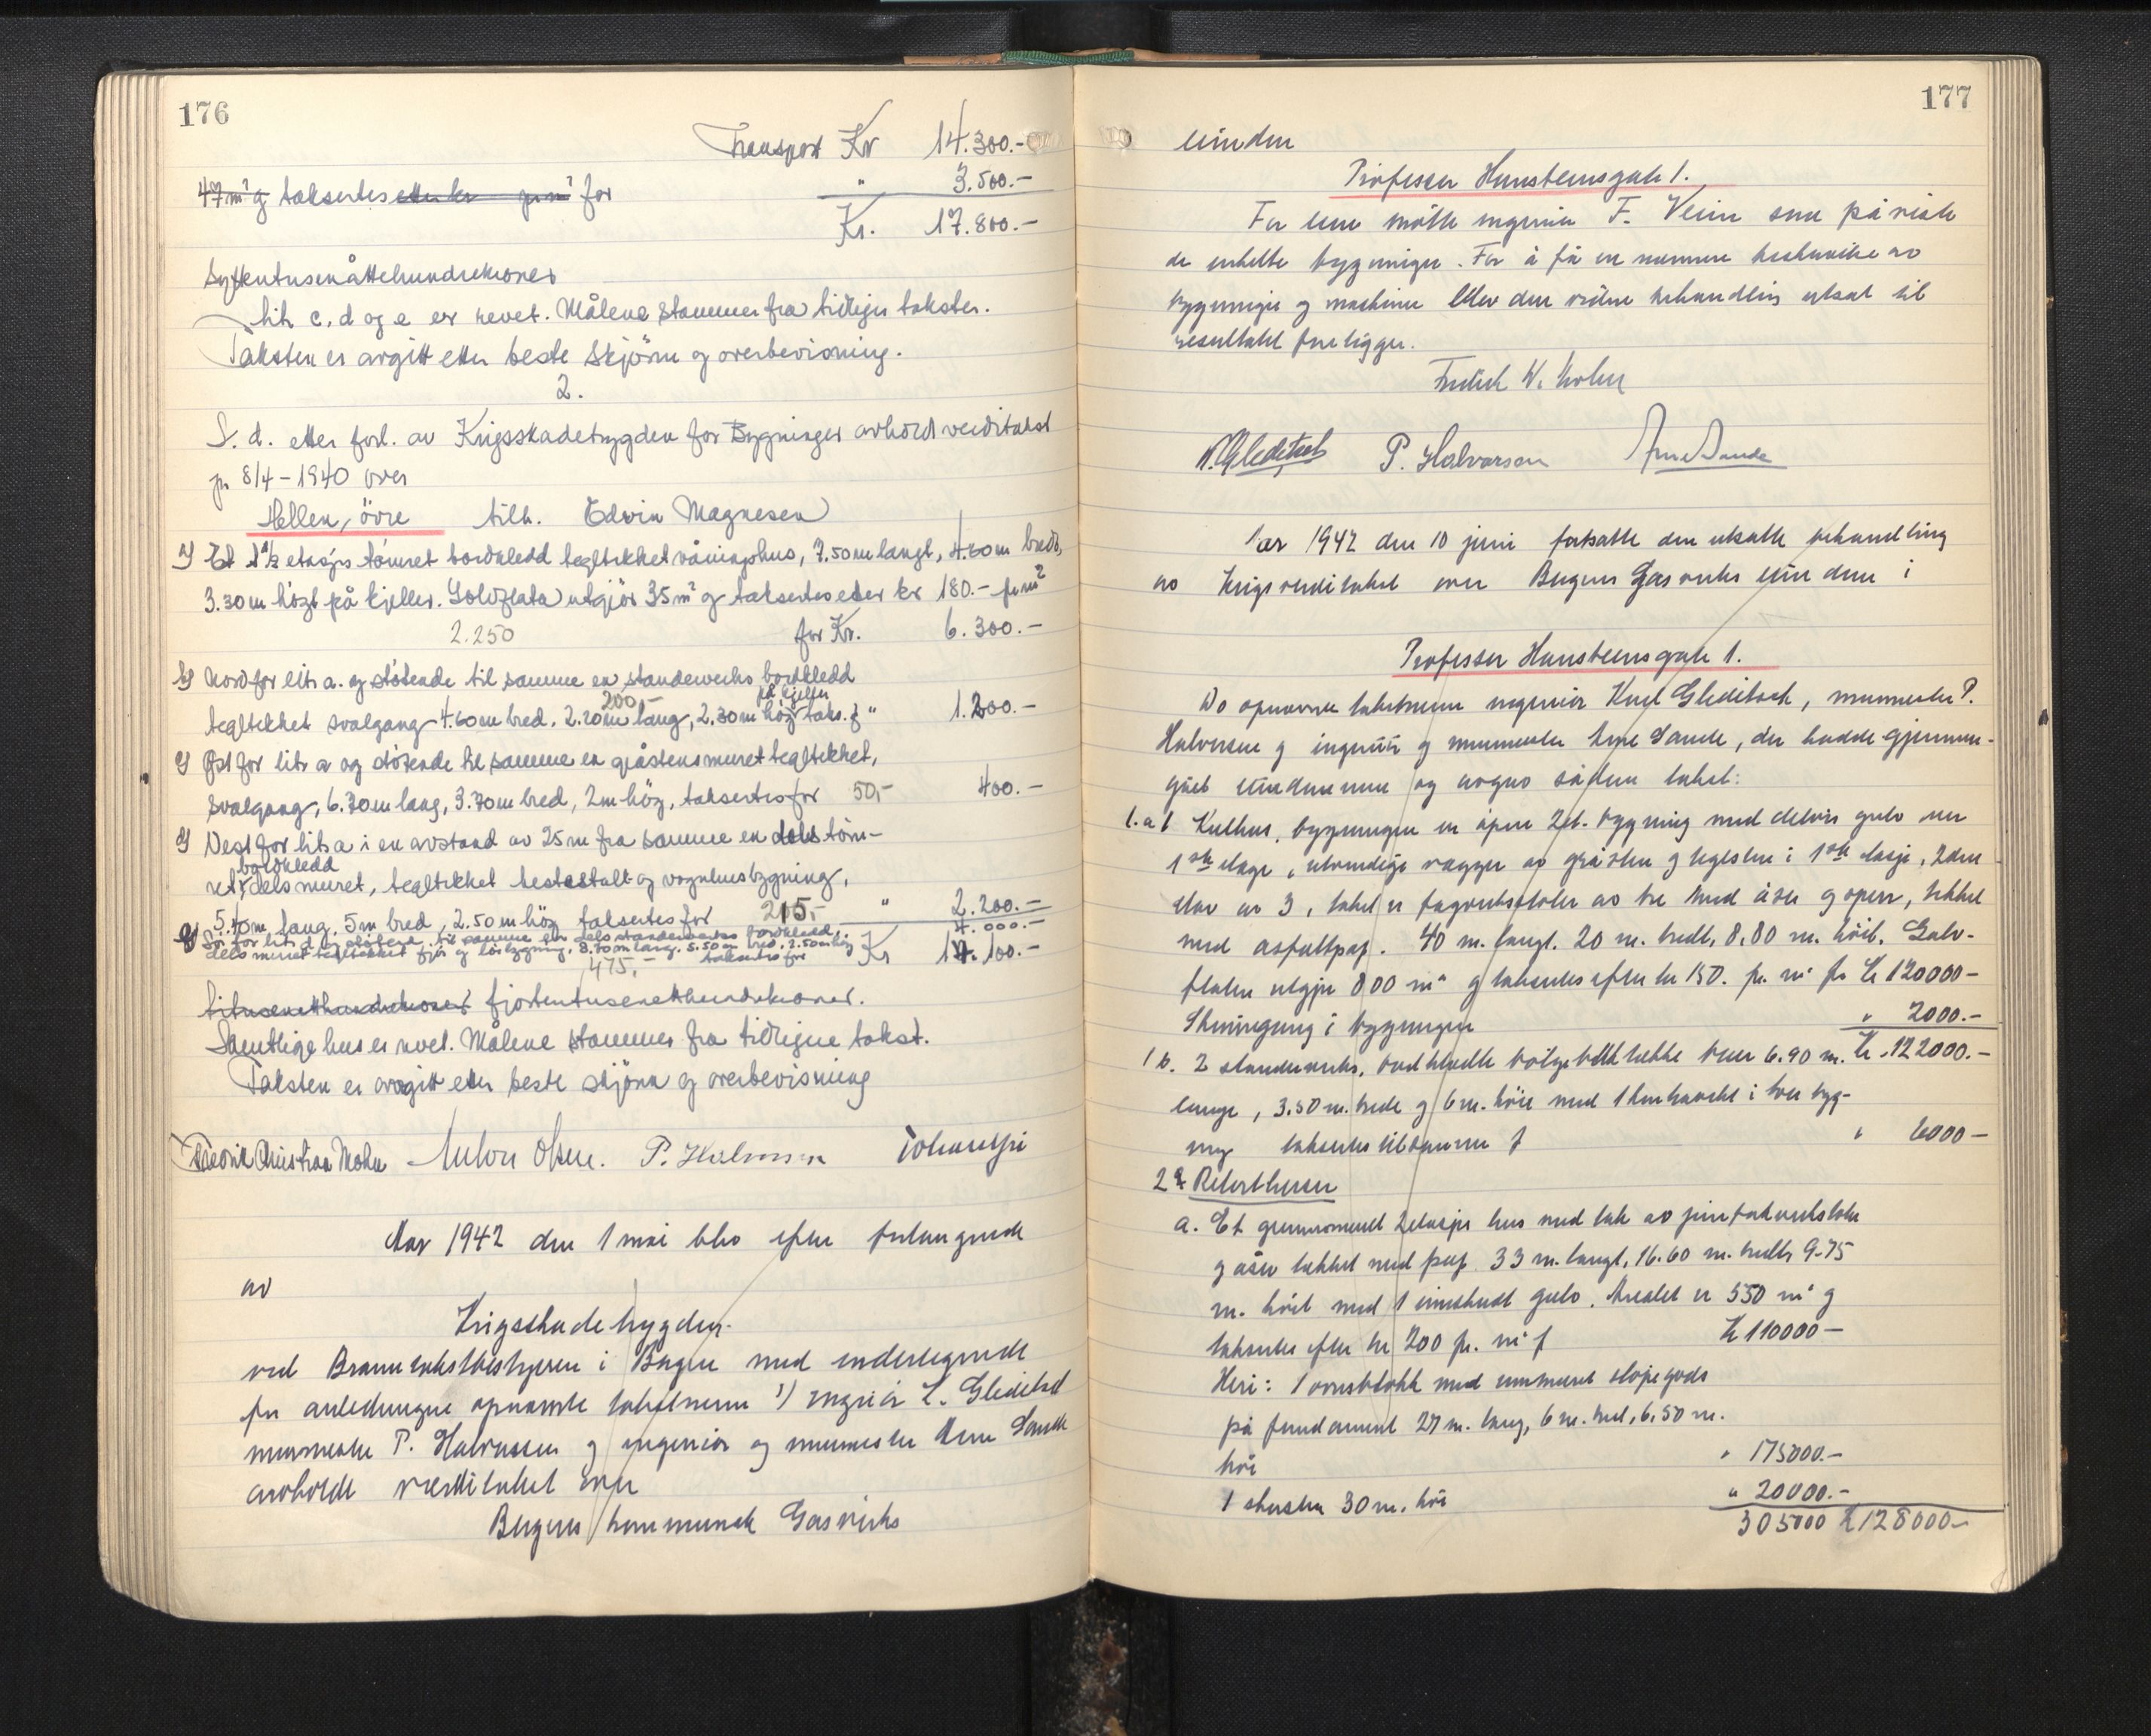 176
Transport Kr 14.300.-
47 m² og takseres etter kr pr m² for " 3.500.-
Kr. 17.800.-
Syttentusenåttehundrekroner
Litr c, d og e er revet. Målene stammer fra tidligere takster.
Taksten er avgitt etter beste skjönn og overbevisning.
2.
S. d. etter forl. av Krigsskadetrygden for Bygninger avholdt verditakst
pr 8/4-1940 over
Hellen, övre tilh. Edvin Magnesen
a) Et 1½ etasjes tömret bordkledd tegltekket våningshus, 7.50 m langt, 4.60 m bredt,
3.30 m högt på kjeller. Golvflata utgjör 35 m² og takseres etter kr 180.- pr m²
2.250 for Kr. 6.300.-
b) Nord for litr a. og stötende til samme en standerverks bordkledd
200,- på kjeller
tegltekket svalgang 4.60 m bred, 2.20 m lang, 2.30 m hög taks. f. " 1.200.-
c) Öst for litr a og stötende til samme en gråstensmuret tegltekket,
svalgang, 6.70 m lang, 3.70 m bred, 2 m hög, takseres for 50,- 400.-
d) Vest for litr a i en avstand av 25 m fra samme en dels töm-
bordkledd
ret, dels muret, tegltekket hestestall og vognhusbygning,
5.40 m lang, 5 m bred, 2.50 m hög takseres for 215.- " 2.200.-
e) Sör for litr d og stötende til samme en dels standerverks bordkledd
4.000.-
dels muret tegltekket fjös og löebygning, 8.70 m lang, 5.50 m bred, 2.50 m hög
takseres for Kr 14.100.-
475,-
titusenetthundrekroner fjortentusenetthundrekroner.
Samtlige hus er revet. Målene stammer fra tidligere takst.
Taksten er avgitt etter beste skjönn og overbevisning
Fredrik Christian Mohn Anton Olsen. P. Halvorsen
Aar 1942 den 1 mai blev efter forlangende
av
Krigsskadetrygden
ved Branntakstbestyreren i Bergen med undertegnede
for anledningen opnevnte takstmenn 1) ingeniör K. Gleditsch
murmester P. Halvorsen og ingeniör og murmester Arne Sande
avholdt verditakst over
Bergens kommunale Gasverks
177
eiendom
Professor Hansteensgate 1.
For eieren mötte ingeniör F. Veim som påviste
de enkelte bygninger. For å få en nærmere beskrivelse av
bygninger og maskiner blev den videre behandling utsat til
resultatet foreligger.
Fredrik W. Mohn
K. Gleditsch P. Halvorsen Arne Sande
Aar 1942 den 10 juni fortsatte den utsatte behandling
av krigsverditakst over Bergens Gasverks eiendom i
Professor Hansteensgate 1.
De opnevnte takstmenn ingeniör Knut Gleditsch, murmester P.
Halvorsen og ingeniör og murmester Arne Sande, der hadde gjennem-
gået eiendommen og avgav sådan takst:
1. a 1 Kulhus, bygningen er åpen 2 et. bygning med delvis gulv over
1ste etage, utvendige vægger av gråsten og teglsten i 1ste etasje, 2den
etage er 3, taket er fagverksstoler av tre med åser og sperr, tekket
med asfaltpap. 40 m. langt. 20 m. bredt, 8,80 m. höit. Gulv-
flaten utgjör 800 m² og takseres efter kr 150. pr. m² for Kr 120000-
Skinnegang i bygningen " 2000.-
Kr. 122000.-
1 b. 2 standerverks, bordkledte bölgeblikktekte buer 6.90 m.
lange, 3.50 m. brede og 6 m. höie med 1 kulknuser i hver byg-
ning takseres tilsammen f " 6000-
2. Retorthuser
a. Et grunnmuret 2 etasjes hus med tak av jernfakverkstoler
og åser tekket med pap 33 m. langt, 16.60 m. bredt, 9.75
m. höit med 1 innskudt gulv. Arealet er 550 m² og
takseres efter kr 200 pr. m² f Kr 110000-
Heri: 1 ovnsblokk med innmuret stöpegods
på fundament 27 m. lang, 6 m. bred, 6,50 m.
höi " 175000.-
1 skorsten 30 m. höi " 20000.-
305000 Kr 128000-